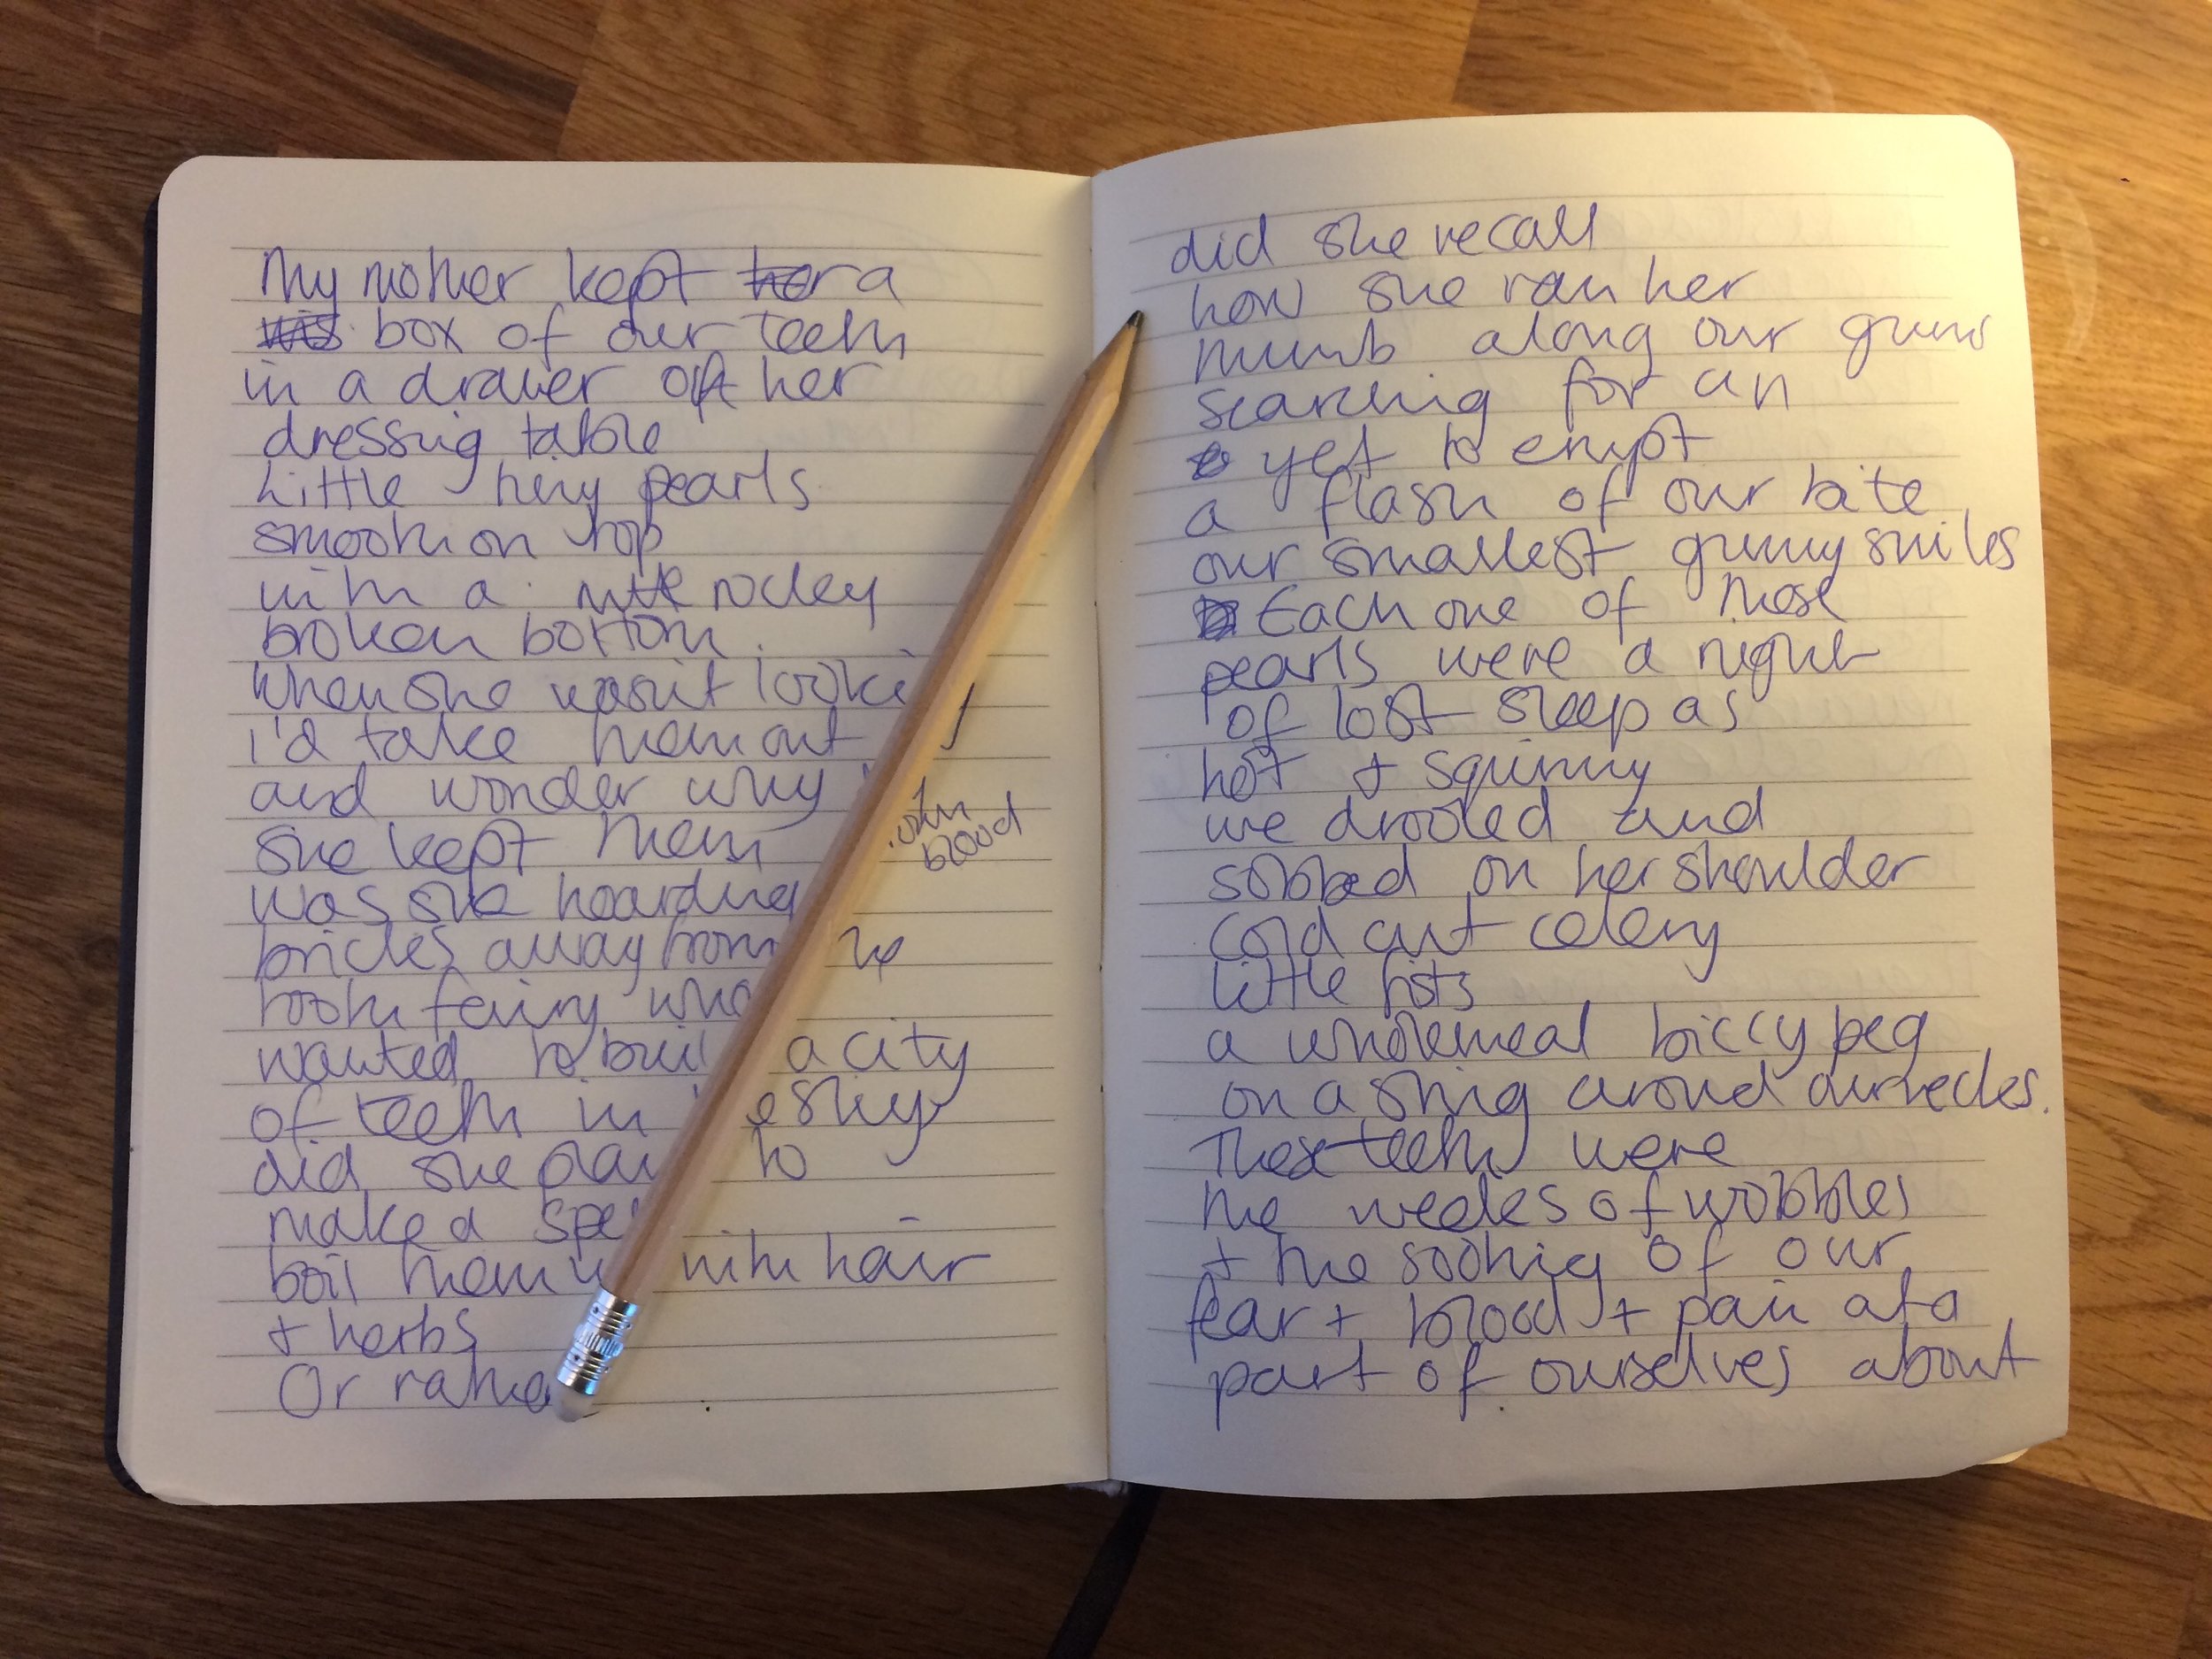 My mother kept her a
his box of our teeth
in a drawer of her
dressing table
Little tiny pearls
smooth on top
with a little rocky
broken bottom.
When she wasn't looki
i'd take them out
and wonder why
she kept them
with
blood
was she hoarding
bricks away from the
tooth fairy who
wanted to buil a city
of teeth in e sky
did she pla to
make a spe
boil them with hair
+ herbs
Or rathe
did she recall
how she ran her
thumb along our gums
searching for an
yet to erupt
a flash of our bite
our smallest gummy smiles
Each one of those
pearls were a night
of lost sleep as
hot + squirmy
we drooled and
sobbed on her shoulder
cold cut celery
little fists
a wholemeal biccy peg
on a string around our necks.
These teeth were
the weeks of wobbles
+ the soothing of our
fear + blood + pain at a
part of ourselves about